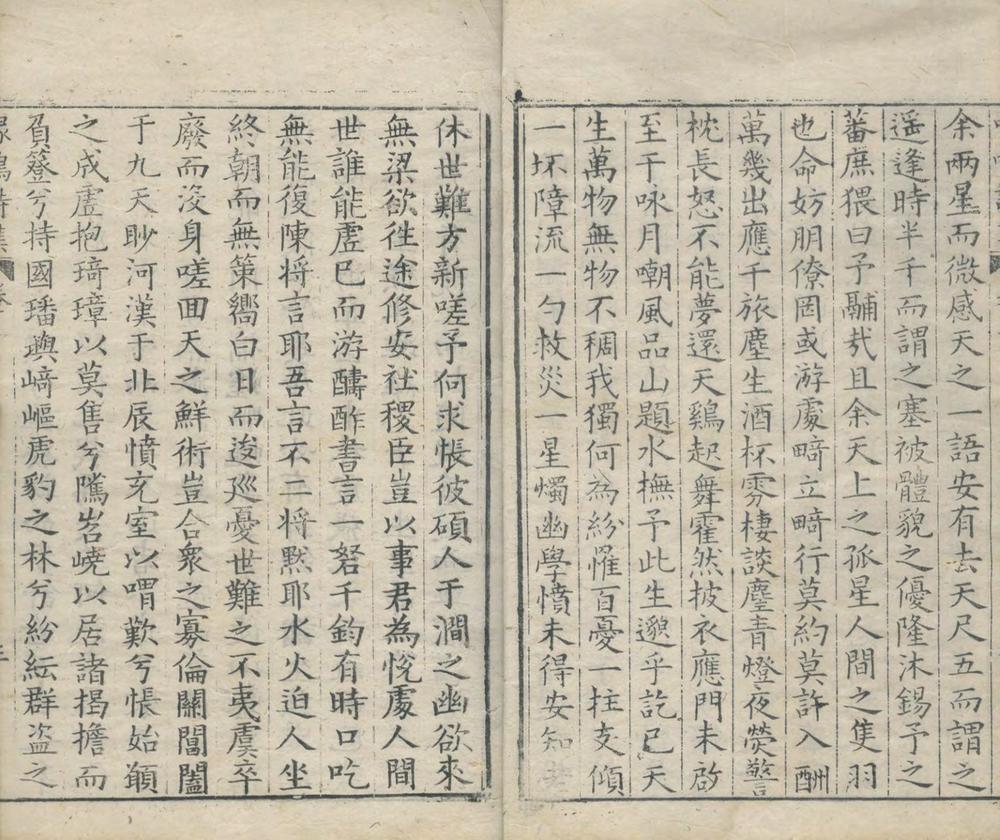 余兩星而微感天之一語安有去天尺五而謂之
遥逢時半千而謂之塞被體貌之優隆沐錫予之
蕃庶猥曰予黼㦲且余天上之孤星人間之隻羽
也命妨朋僚罔或游處畸立畸行莫約莫許入酬
萬幾出應千旅塵生酒杯雰棲談麈青燈夜熒警
枕長怒不能夢還天鷄起舞霍然披衣應門未啓
至于咏月嘲風品山題水撫予此生邈乎訖已天
生萬物無物不稠我獨何為紛罹百憂一柱支傾
一抔障流一勺救災一星燭幽學憤未得安知
休世難方新嗟予何求悵彼碩人于澗之幽欲來
無梁欲徃途修安社稷臣豈以事君為悅處人間
世誰能虛已而游醻酢書言一弩千鈞有時口吃
無能復陳将言耶吾言不二将黙耶水火迫人坐
終朝而無策嚮白日而逡廵憂世難之不夷虞卒
廢而沒身嗟回天之鮮術豈合衆之寡倫關閶闔
于九天眇河漢于北辰憤充室以喟歎兮悵始願
之成虛抱琦璋以莫售兮㠥岧嶢以居諸揭擔而
負簦兮持國璠璵﨑嶇虎豹之林兮紛紜群盗之